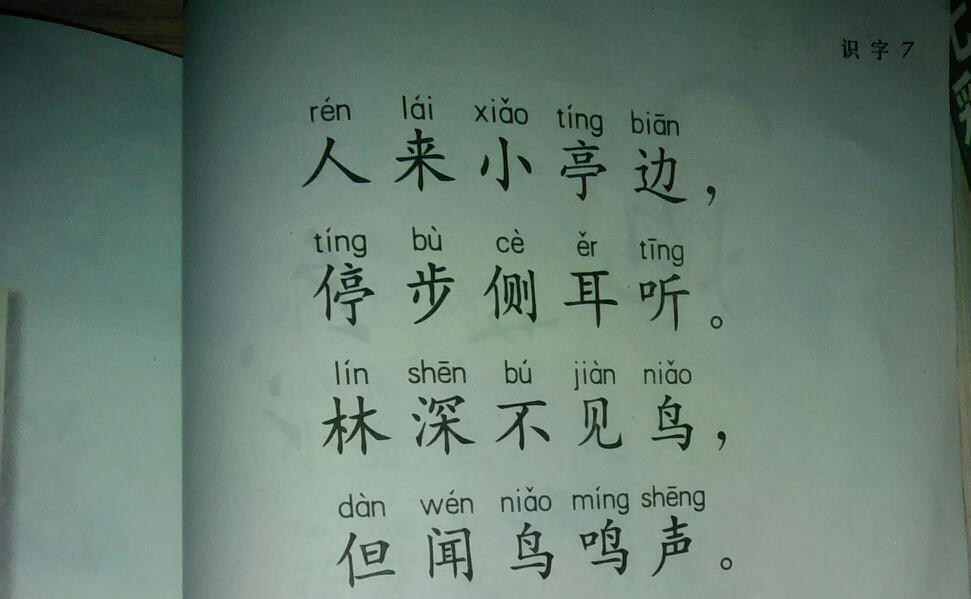 识字7
rén lái xiǎo tíng biān
人来小亭边，
tíng bù cè ěr tīng
停步侧耳听。
lín shēn bú jiàn niǎo
林深不见鸟，
dàn wén niǎo míng shēng
但闻鸟鸣声。